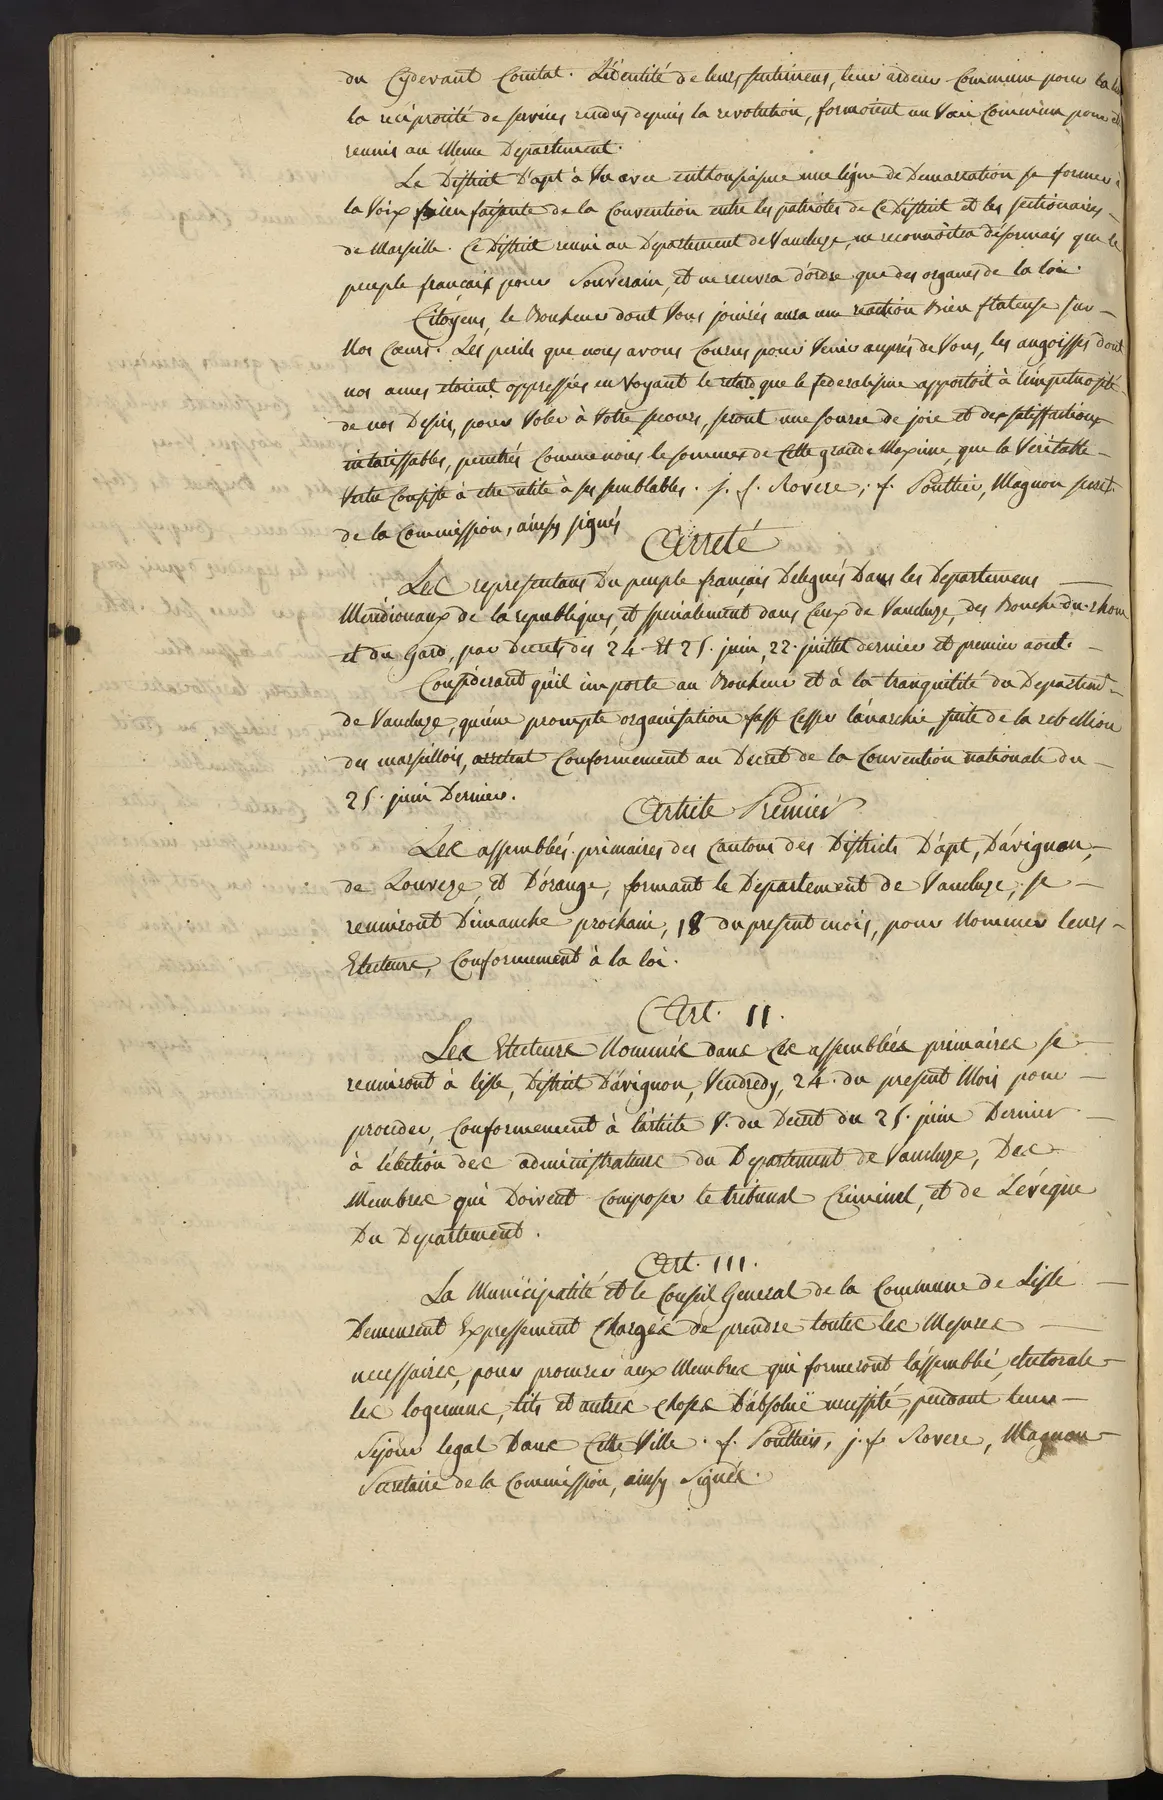 du Cydevant Comtat. L'identité de leurs sentimens, leur ardeur Commune pour la
la réciprocité de services rendus depuis la revolution, formoient un Vœu Commun pour
reunis au Meme Departement.
Le District D'apt à Vu avec enthousiasme une ligne de Demarcation se former à
la Voix bien faisante de la Convention entre les patriotes de Ce District et les sectionaires
de Marseille. Ce District reuni au Departement de Vaucluze, ne reconnoitra désormais que le
peuple français pour Souverain, et ne recevra d'ordre que des organes de la loi.
Citoyens, le Bonheur dont Vous jouirés aura une reaction Bien flateuse sur
Nos Cœurs. Les perils que nous avons Courus pour Venir auprès de Vous, les angoisses dont
nos ames etoient oppressées en Voyant le retard que le federalisme apportoit à l'impetuosité
de nos Desirs, pour Voler à Votre secours, seront une source de joie et des satisfactions
intarissables, penetrés Comme nous le sommes de Cette grande Maxime, que la Veritable
Vertu Consiste à etre utile à ses semblables. j. f. Rovere, f. Poultier, Magnon secret.
de la Commission, ainsy signés
Arreté
Les representans Du peuple français Delegués Dans les Departemens
Méridionaux de la republiques, et specialement dans Ceux de Vaucluze, des Bouche du rhone
et du Gard, par Decrets des 24. Et 25. juin, 22. juillet dernier et premier aout.
Considerant qu'il importe au Bonheur et à la tranquilité du Departemt.
de Vaucluze, qu'une prompte organisation fasse Cesser l'anarchie, suite de la rebellion
des marseillois, arretent Conformement au Decret de la Convention nationale du
25. juin Dernier.
Article Premier
Les assemblés primaires des Cantons des Districts D'apt, D'avignon,
de Louveze, et D'orange, formant le Departement de Vaucluze, se
reuniront Dimanche prochain, 18 du present mois, pour Nommer leurs
Electeurs, Conformement à la loi.
Art. II.
Les Electeurs Nommés dans Ces assemblées primaires se
reuniront à lisle, District D'avignon, Vendredy, 24. du present Mois pour
proceder, Conformement à l'article V. du Decret du 25. juin Dernier
à l'élection des administrateurs du Departement de Vaucluze, Des
Membres qui Doivent Composer le tribunal Criminel, et de L'évêque
Du Departement.
Art. III.
La Municipalité et le Conseil General de la Commune de Lisle
Demeurent Expressement Chargés de prendre toutes les Mesures
necessaires, pour procurer aux Membres qui formeront l'assemblé, electorale
les logemens, lits et autres choses D'absolüe necessité, pendant leur
Sejour legal Dans Cette Ville. f. Poultier, j. f. Rovere, Magnon
Secretaire de la Commission, ainsy Signés.